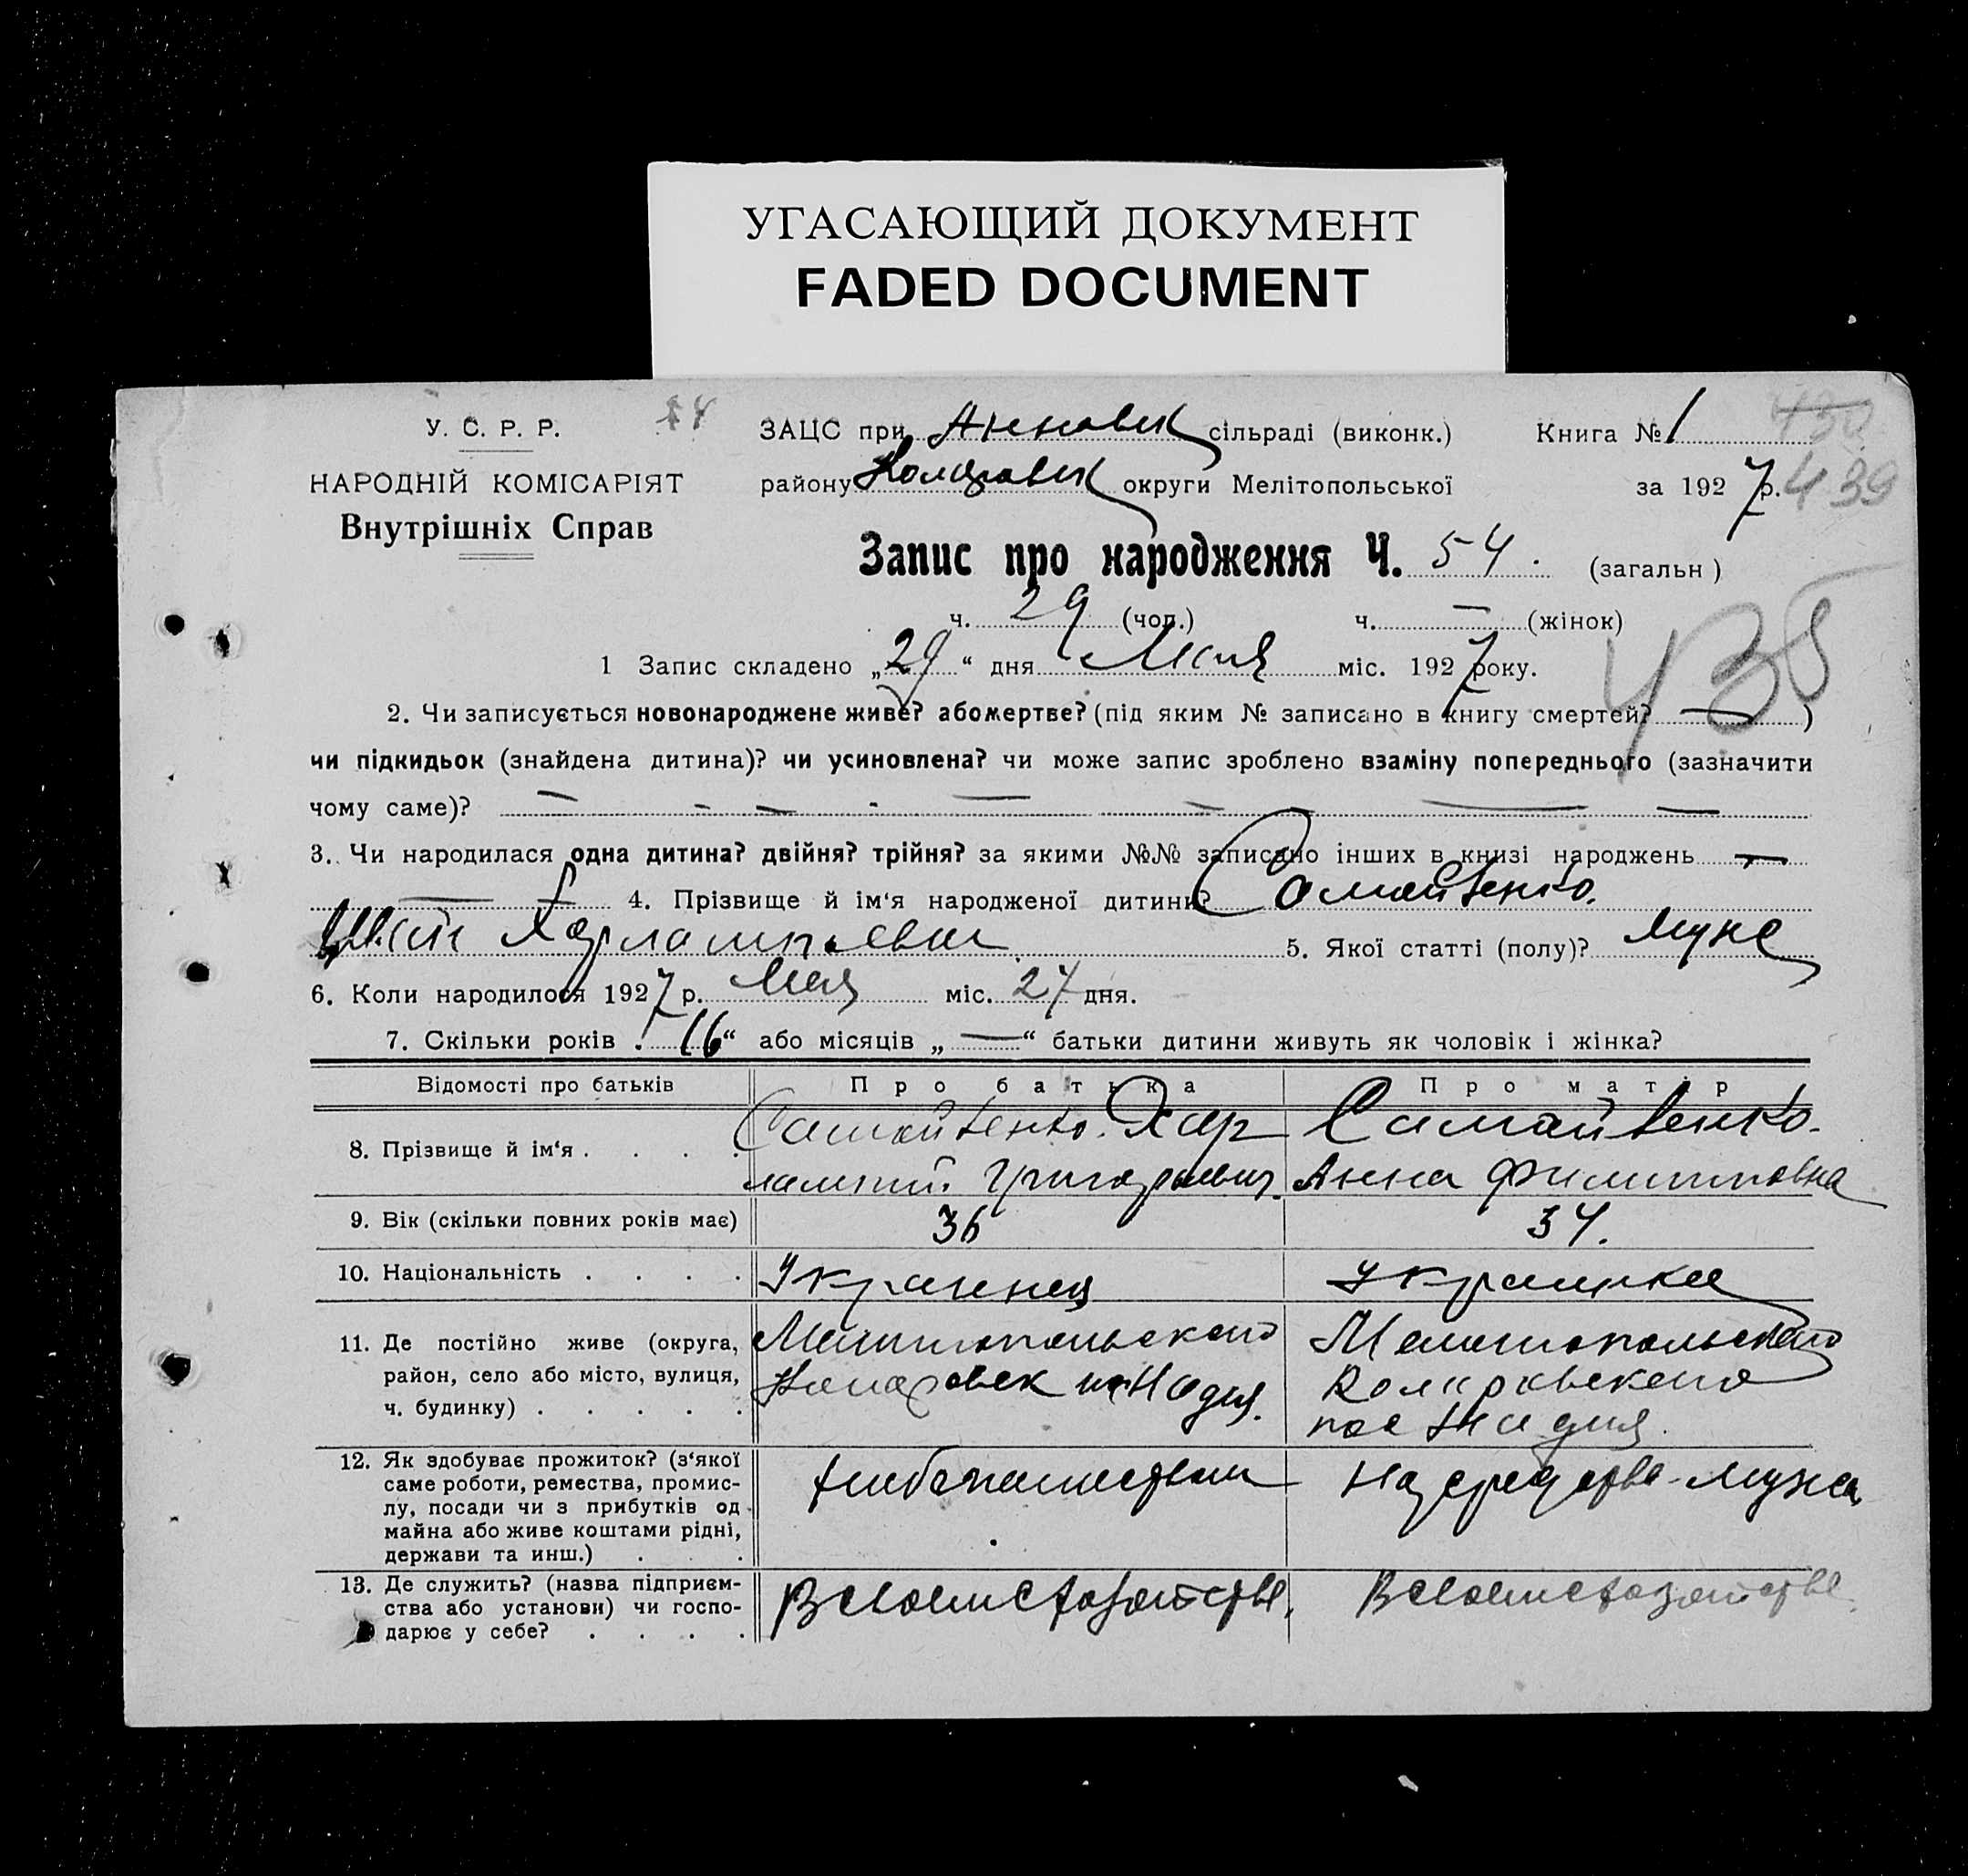 УГАСАЮЩИЙ ДОКУМЕНТ
FADED DOCUMENT
У. С. Р. Р.
НАРОДНІЙ КОМІСАРІЯТ
Внутрішніх Справ
ЗАЦС при Анновск сільраді (виконк.) Книга № 1
430
району округи Мелітопольської за 1927 р. 439
Запис про народження Ч. 54. (загальн)
ч. 29 (чол.) ч. — (жінок)
435
1 Запис складено „29“ дня Мая міс. 1927 року.
2. Чи записується новонароджене живе? або мертве? (під яким № записано в книгу смертей? — )
чи підкидьок (знайдена дитина)? чи усиновлена? чи може запис зроблено взаміну попереднього (зазначити
чому саме)? — - — - — — — — —
3. Чи народилася одна дитина? двійня? трійня? за якими №№ записано інших в книзі народжень —
— 4. Прізвище й ім‘я народженої дитини? Самойвенко.
Харлампьевич 5. Якої статті (полу)? муже
6. Коли народилося 1927 р. Мая міс. 27 дня.
7. Скільки років „16“ або місяців „—“ батьки дитини живуть як чоловік і жінка?
Відомості про батьків Про батька Про матір
8. Прізвище й ім‘я . . . . Самойвенко. Хар Самойвенко.
лампий Григорьевич. Анна Филипповна
9. Вік (скільки повних років має) 36 34.
10. Національність . . . . Украинец Украинка
11. Де постійно живе (округа, Мелитопольского Мелитопольского
район, село або місто, вулиця, Надия.
ч. будинку) . . . . . пос Надия.
12. Як здобуває прожиток? (з‘якої
саме роботи, ремества, промис- Хлебопашеством На средства мужа
лу, посади чи з прибутків од
майна або живе коштами рідні,
держави та инш.) . . .
13. Де служить? (назва підприєм- В своем хозяйстве. В своем хозяйстве.
ства або установи) чи госпо-
дарює у себе? . . . .